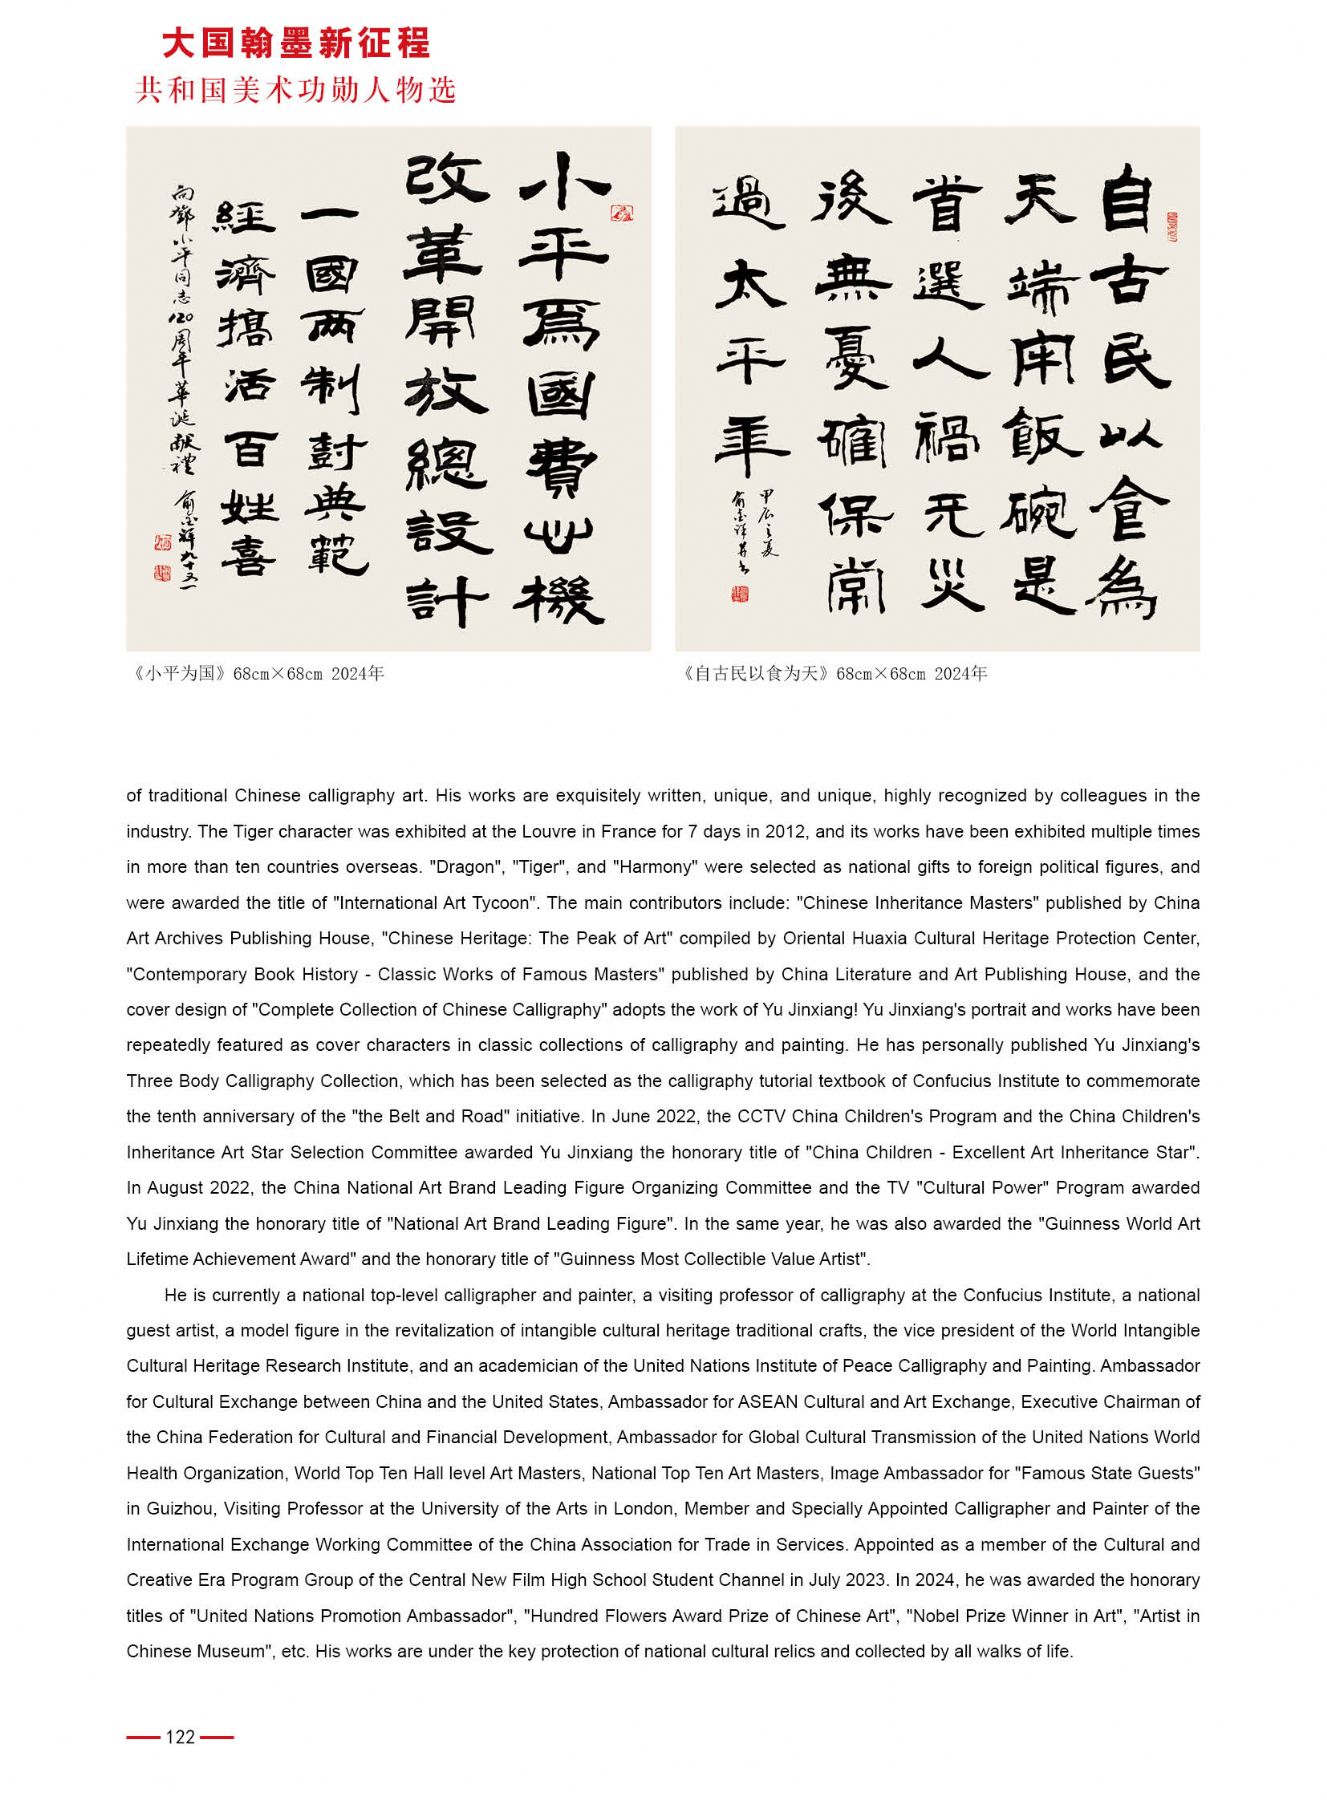 大国翰墨新征程
共和国美术功勋人物选
小平爲國費心機
改革開放總設計
一國两制封典範
經濟搞活百姓喜
向鄧小平同志120周年華诞献禮
自古民以食為
天端牢飯碗是
首選人禍天災
後無憂確保常
過太平年
甲辰之夏
《小平为国》68cm×68cm 2024年
《自古民以食为天》68cm×68cm 2024年
of traditional Chinese calligraphy art. His works are exquisitely written, unique, and unique, highly recognized by colleagues in the
industry. The Tiger character was exhibited at the Louvre in France for 7 days in 2012, and its works have been exhibited multiple times
in more than ten countries overseas. "Dragon", "Tiger", and "Harmony" were selected as national gifts to foreign political figures, and
were awarded the title of "International Art Tycoon". The main contributors include: "Chinese Inheritance Masters" published by China
Art Archives Publishing House, "Chinese Heritage: The Peak of Art" compiled by Oriental Huaxia Cultural Heritage Protection Center,
"Contemporary Book History - Classic Works of Famous Masters" published by China Literature and Art Publishing House, and the
cover design of "Complete Collection of Chinese Calligraphy" adopts the work of Yu Jinxiang! Yu Jinxiang's portrait and works have been
repeatedly featured as cover characters in classic collections of calligraphy and painting. He has personally published Yu Jinxiang's
Three Body Calligraphy Collection, which has been selected as the calligraphy tutorial textbook of Confucius Institute to commemorate
the tenth anniversary of the "the Belt and Road" initiative. In June 2022, the CCTV China Children's Program and the China Children's
Inheritance Art Star Selection Committee awarded Yu Jinxiang the honorary title of "China Children - Excellent Art Inheritance Star".
In August 2022, the China National Art Brand Leading Figure Organizing Committee and the TV "Cultural Power" Program awarded
Yu Jinxiang the honorary title of "National Art Brand Leading Figure". In the same year, he was also awarded the "Guinness World Art
Lifetime Achievement Award" and the honorary title of "Guinness Most Collectible Value Artist".
He is currently a national top-level calligrapher and painter, a visiting professor of calligraphy at the Confucius Institute, a national
guest artist, a model figure in the revitalization of intangible cultural heritage traditional crafts, the vice president of the World Intangible
Cultural Heritage Research Institute, and an academician of the United Nations Institute of Peace Calligraphy and Painting. Ambassador
for Cultural Exchange between China and the United States, Ambassador for ASEAN Cultural and Art Exchange, Executive Chairman of
the China Federation for Cultural and Financial Development, Ambassador for Global Cultural Transmission of the United Nations World
Health Organization, World Top Ten Hall level Art Masters, National Top Ten Art Masters, Image Ambassador for "Famous State Guests"
in Guizhou, Visiting Professor at the University of the Arts in London, Member and Specially Appointed Calligrapher and Painter of the
International Exchange Working Committee of the China Association for Trade in Services. Appointed as a member of the Cultural and
Creative Era Program Group of the Central New Film High School Student Channel in July 2023. In 2024, he was awarded the honorary
titles of "United Nations Promotion Ambassador", "Hundred Flowers Award Prize of Chinese Art", "Nobel Prize Winner in Art", "Artist in
Chinese Museum", etc. His works are under the key protection of national cultural relics and collected by all walks of life.
122